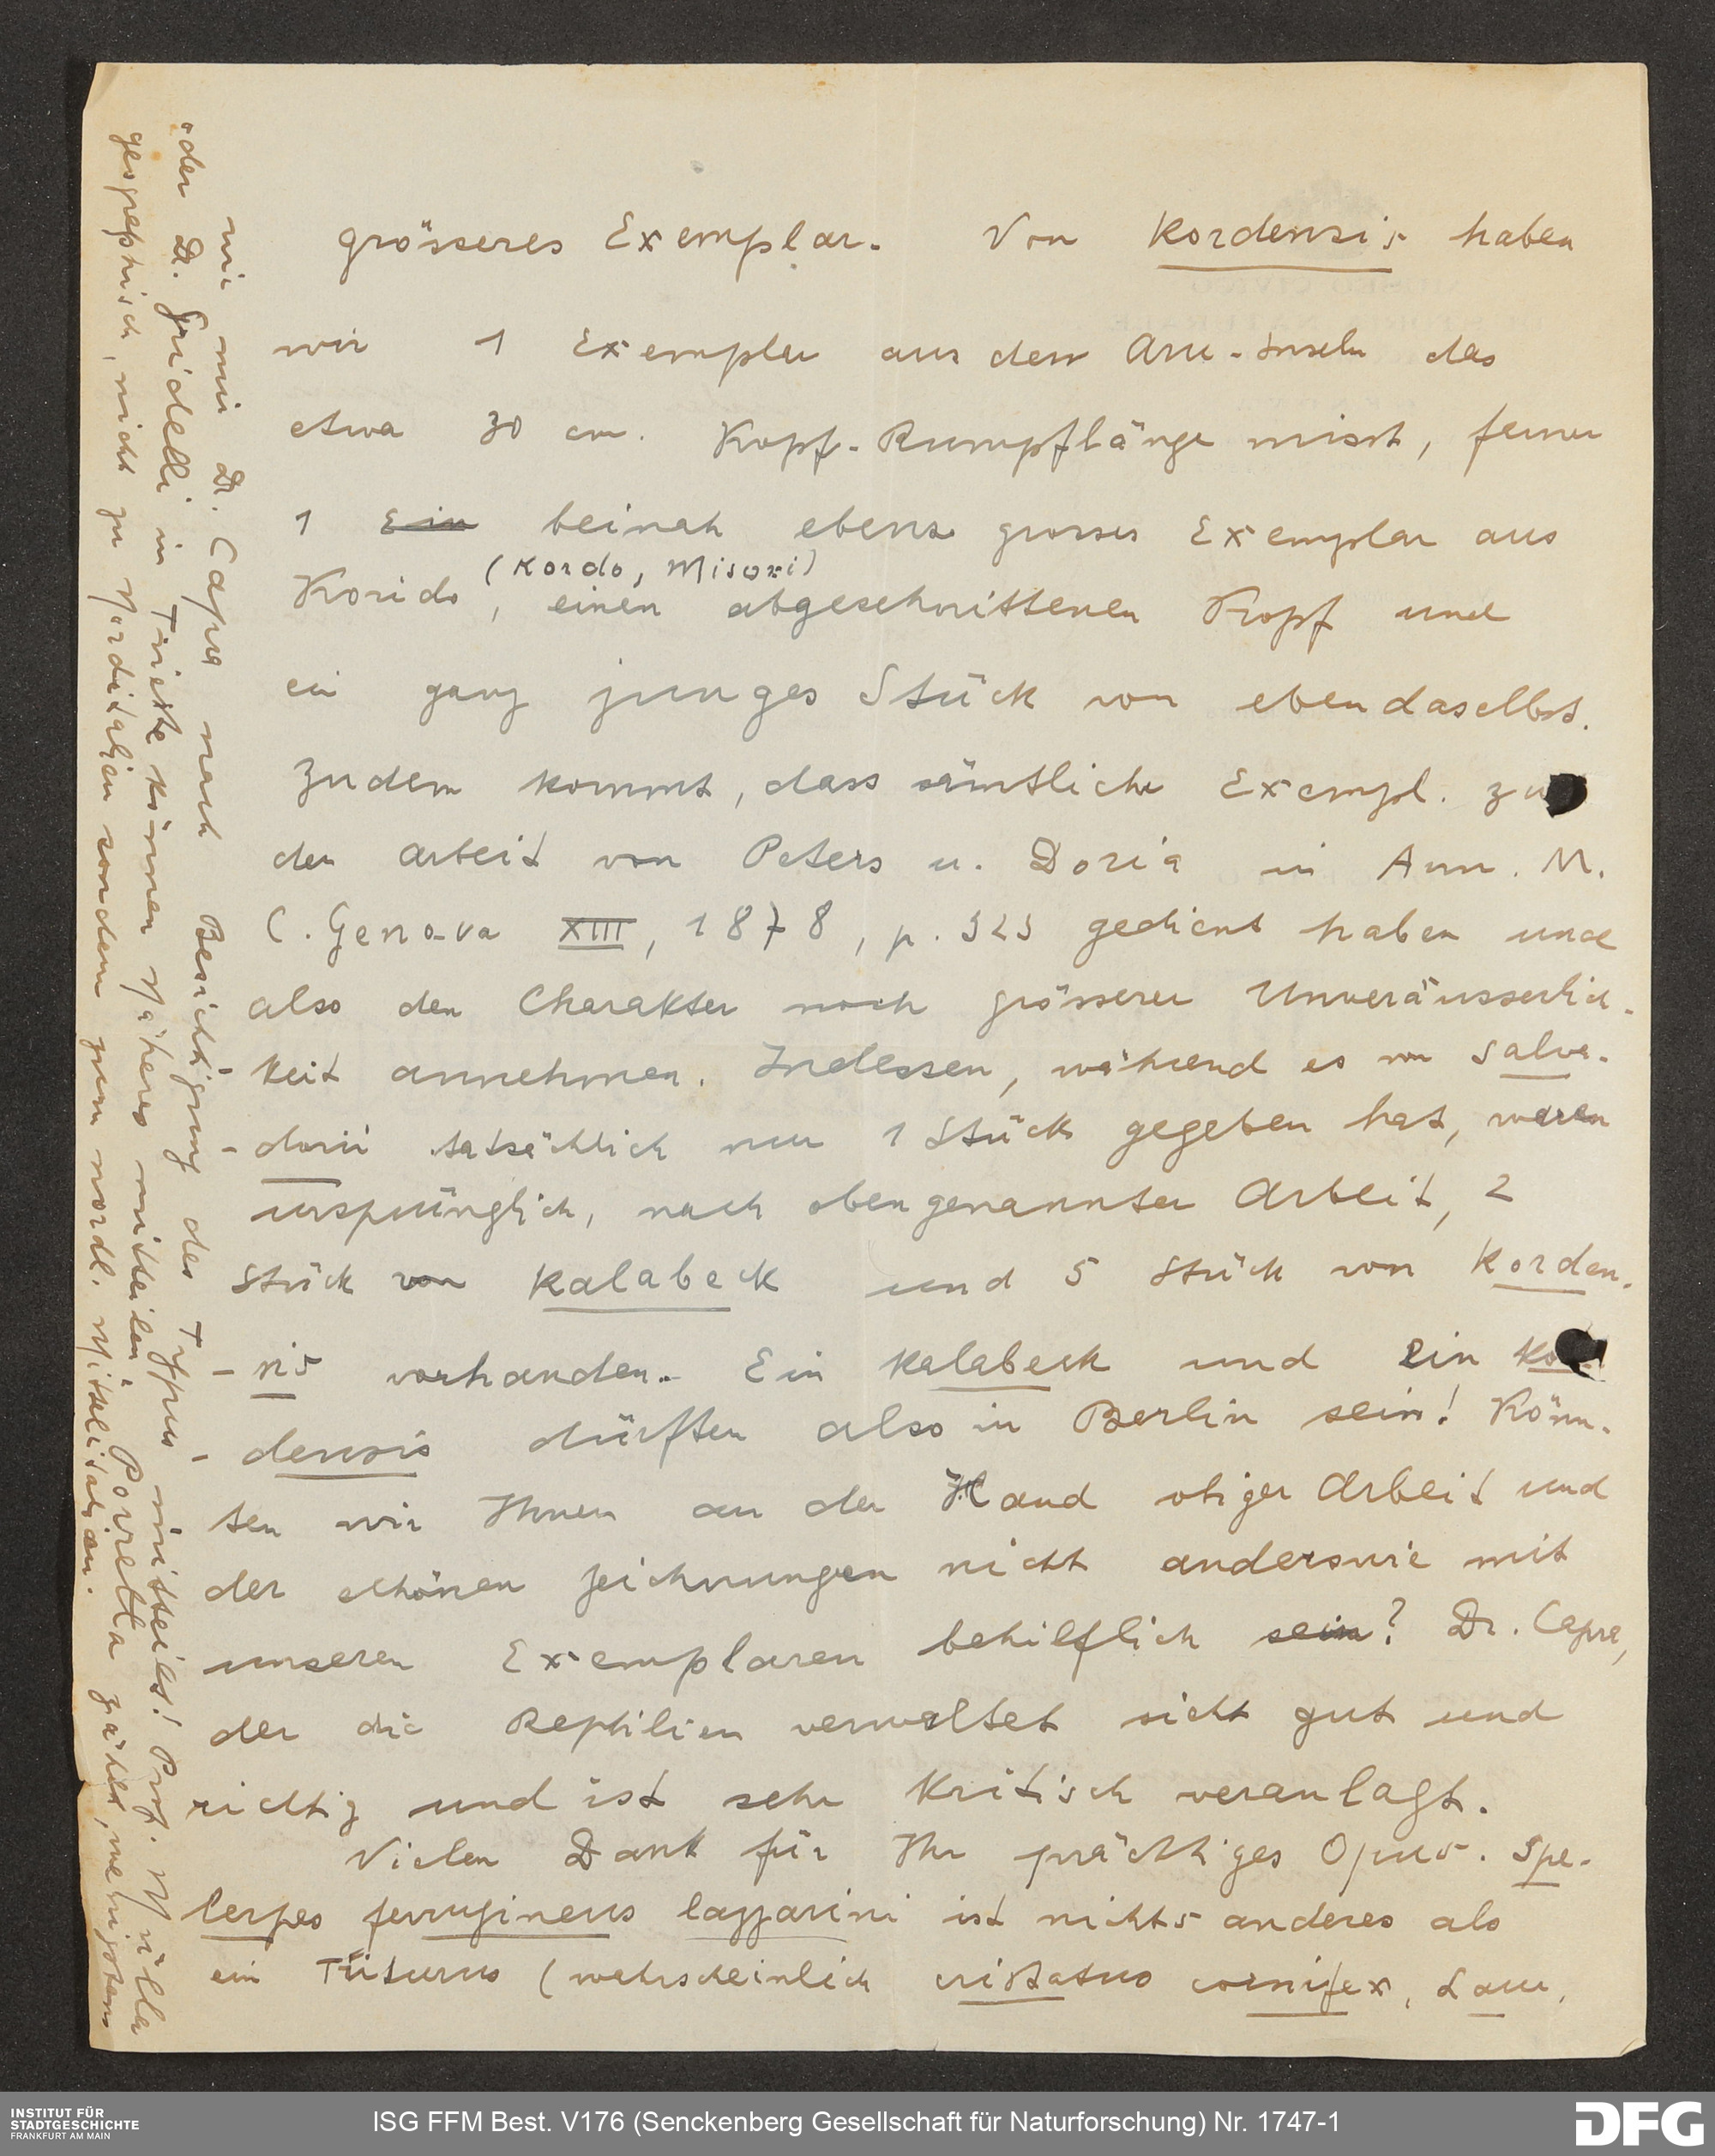 grösseres Exemplar. Von Kordensis haben
wir 1 Exemplar aus den Aru-Inseln das
etwa 30 cm. Kopf-Rumpflänge misst, ferner
1 Ein beinah ebenso grosses Exemplar aus
(Kordo, Misori)
Korido, einen abgeschnittenen Kopf und
ein ganz junges Stück von ebendaselbst.
Zudem kommt, dass sämtliche Exempl. zu
der Arbeit von Peters u. Doria in Ann. M.
C. Genova XIII, 1878, p. 323 gedient haben und
also den Charakter noch grösserer Unveräusserlich-
-keit annehmen. Indessen, während es von Salva-
-dorii tatsächlich nur 1 Stück gegeben hat, waren
ursprünglich, nach obengenannter Arbeit, 2
Stück von Kalabeck und 5 Stück von Korden-
-sis vorhanden. Ein Kalabeck und ein Kor-
-densis dürften also in Berlin sein! Könn-
ten wir Ihnen an der Hand obiger Arbeit und
der schönen Zeichnungen nicht anderswie mit
unseren Exemplaren behilflich sein? Dr. Capra,
der die Reptilien verwaltet sieht gut und
richtig und ist sehr kritisch veranlagt.
Vielen Dank für Ihr prächtiges Opus. Spe-
lerpes ferrugineus lazzarini ist nichts anderes als
ein Triturus (wahrscheinlich cristatus carnifex, Laur,
wie mir Dr. Capra nach Besichtigung des Typus mitteilt! Prof. Müller
oder Dr. Gridelli in Trieste können Näheres mitteilen. Porretta zählt, wenigstens
geographisch, nicht zu Norditalien sondern zum nördl. Mittelitalien.
INSTITUT FÜR
STADTGESCHICHTE
FRANKFURT AM MAIN
ISG FFM Best. V176 (Senckenberg Gesellschaft für Naturforschung) Nr. 1747-1
DFG